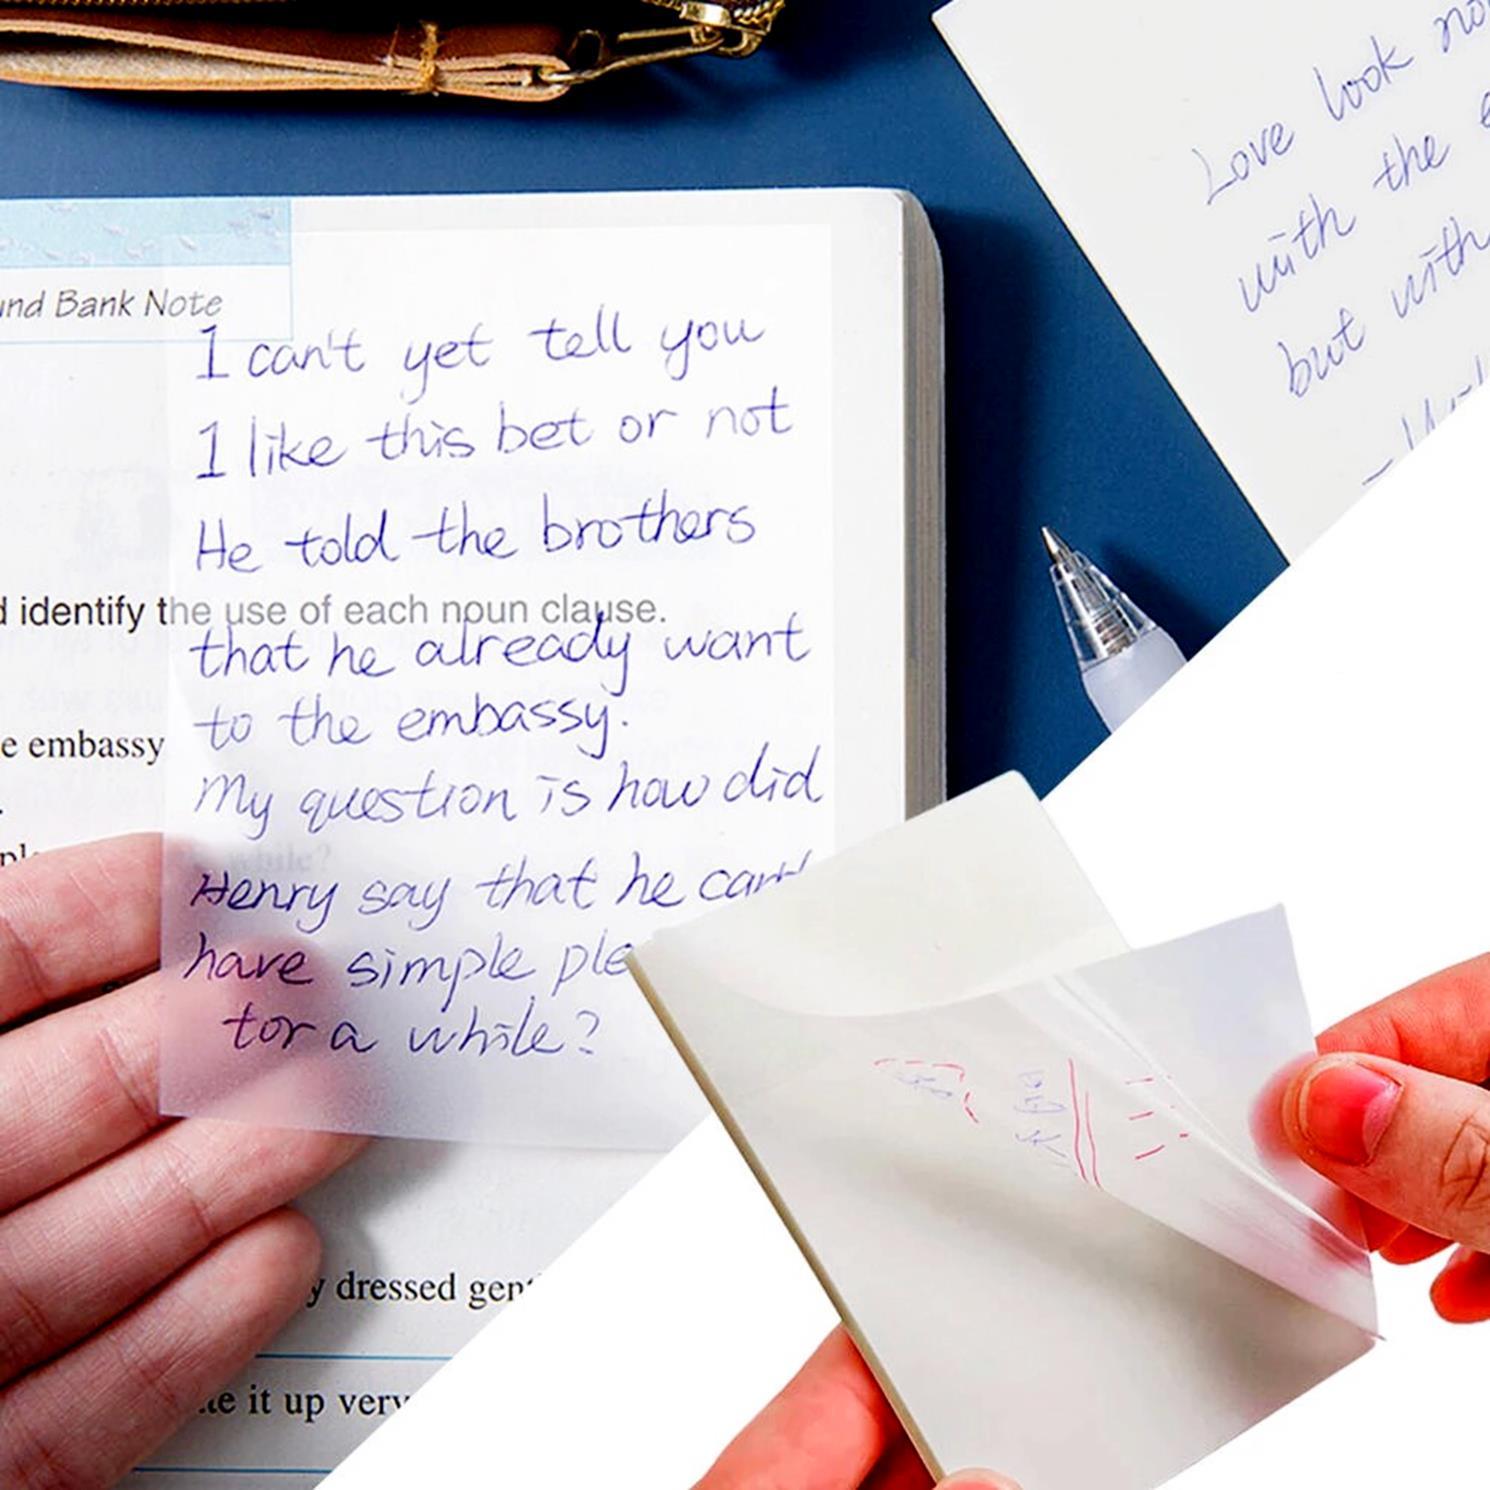 und Bank Note
I can't yet tell you
I like this bet or not
He told the brothers
d identify the use of each noun clause.
that he already want
to the embassy.
e embassy
My question is how did
while?
Henry say that he can't
have simple ple
for a while?
y dressed gen
it up very
Love look no
with the e
but with